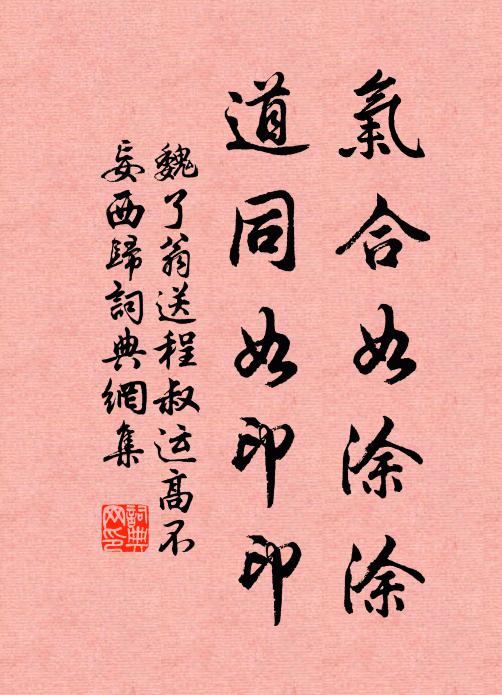 氣合如涂涂
道同如印印
魏了翁送程叔运高不
妄西歸詞典網集
詞典网印